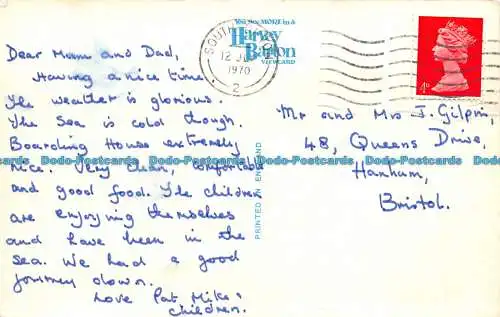 Dear Mum and Dad,
Having a nice time.
The weather is glorious.
The Sea is cold though.
Boarding House extremely
nice. Very clean, comfortable
and good food. The children
are enjoying themselves
and have been in the
sea. We had a good
journey down.
Love Pat, Mike &
Children.
You see MORE in a
Harvey
Barton
VIEWCARD
PRINTED IN ENGLAND
SOUTH
12 J
1970
2
4D
Mr and Mrs J. Gilpin,
48, Queens Drive,
Hanham,
Bristol.
Dodo-Postcards Dodo-Postcards Dodo-Postcards Dodo-Postcards